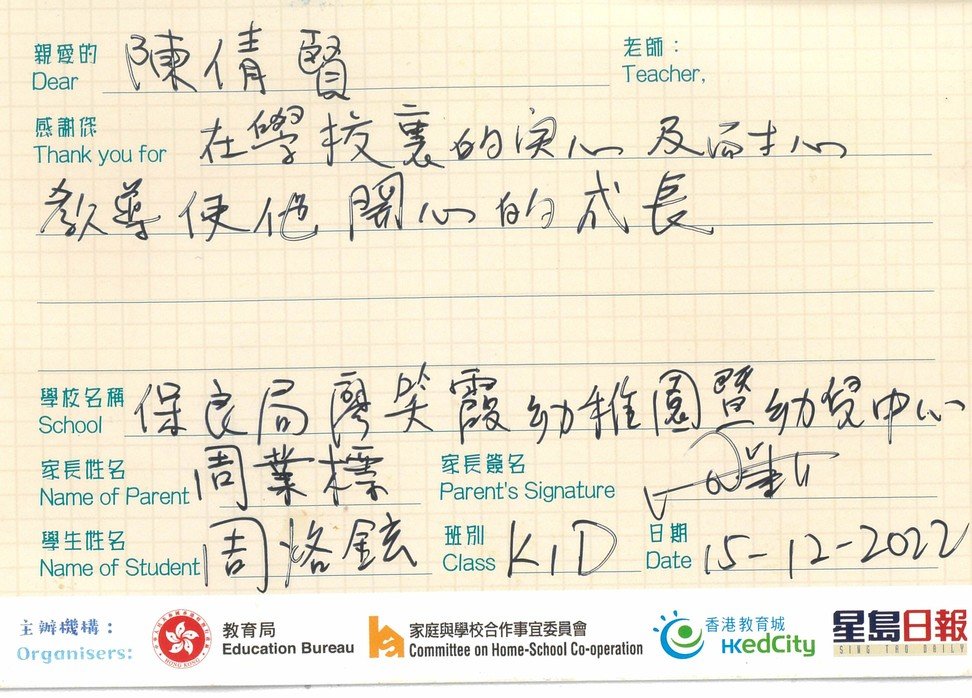 親愛的 陳倩賢 老師：
Dear Teacher,
感謝您 在學校裏的決心及耐心
Thank you for
教導使他開心的成長
學校名稱 保良局廖笑霞幼稚園暨幼兒中心
School
家長姓名 周業標 家長簽名
Name of Parent Parent's Signature
學生姓名 周烙鉉 班別 K1D 日期 15-12-2022
Name of Student Class Date
主辦機構： 教育局 家庭與學校合作事宜委員會 香港教育城 星島日報
Organisers: Education Bureau Committee on Home-School Co-operation HKedCity SING TAO DAILY
HONG KONG